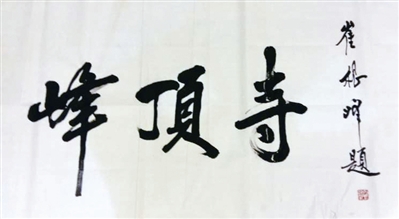 峰頂寺
崔根躍題